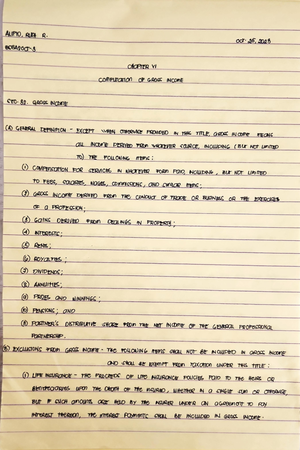 OCT. 25, 2023
CHAPTER VI
COMPUTATION OF GROSS INCOME
SEC. 32. GROSS INCOME
(A) GENERAL DEFINITION - EXCEPT WHEN OTHERWISE PROVIDED IN THIS TITLE, GROSS INCOME MEANS
ALL INCOME DERIVED FROM WHATEVER SOURCE, INCLUDING (BUT NOT LIMITED
TO) THE FOLLOWING ITEMS:
(1) COMPENSATION FOR SERVICES IN WHATEVER FORM PAID, INCLUDING, BUT NOT LIMITED
TO FEES, SALARIES, WAGES, COMMISSIONS, AND SIMILAR ITEMS;
(2) GROSS INCOME DERIVED FROM THE CONDUCT OF TRADE OR BUSINESS OR THE EXERCISE
OF A PROFESSION;
(3) GAINS DERIVED FROM DEALINGS IN PROPERTY;
(4) INTERESTS;
(5) RENTS;
(6) ROYALTIES;
(7) DIVIDENDS;
(8) ANNUITIES;
(9) PRIZES AND WINNINGS;
(10) PENSIONS; AND
(11) PARTNER'S DISTRIBUTIVE SHARE FROM THE NET INCOME OF THE GENERAL PROFESSIONAL
PARTNERSHIP.
(B) EXCLUSIONS FROM GROSS INCOME - THE FOLLOWING ITEMS SHALL NOT BE INCLUDED IN GROSS INCOME
AND SHALL BE EXEMPT FROM TAXATION UNDER THIS TITLE:
(1) LIFE INSURANCE - THE PROCEEDS OF LIFE INSURANCE POLICIES PAID TO THE HEIRS OR
BENEFICIARIES UPON THE DEATH OF THE INSURED, WHETHER IN A SINGLE SUM OR OTHERWISE,
BUT IF SUCH AMOUNTS ARE HELD BY THE INSURER UNDER AN AGREEMENT TO PAY
INTEREST THEREON, THE INTEREST PAYMENTS SHALL BE INCLUDED IN GROSS INCOME.